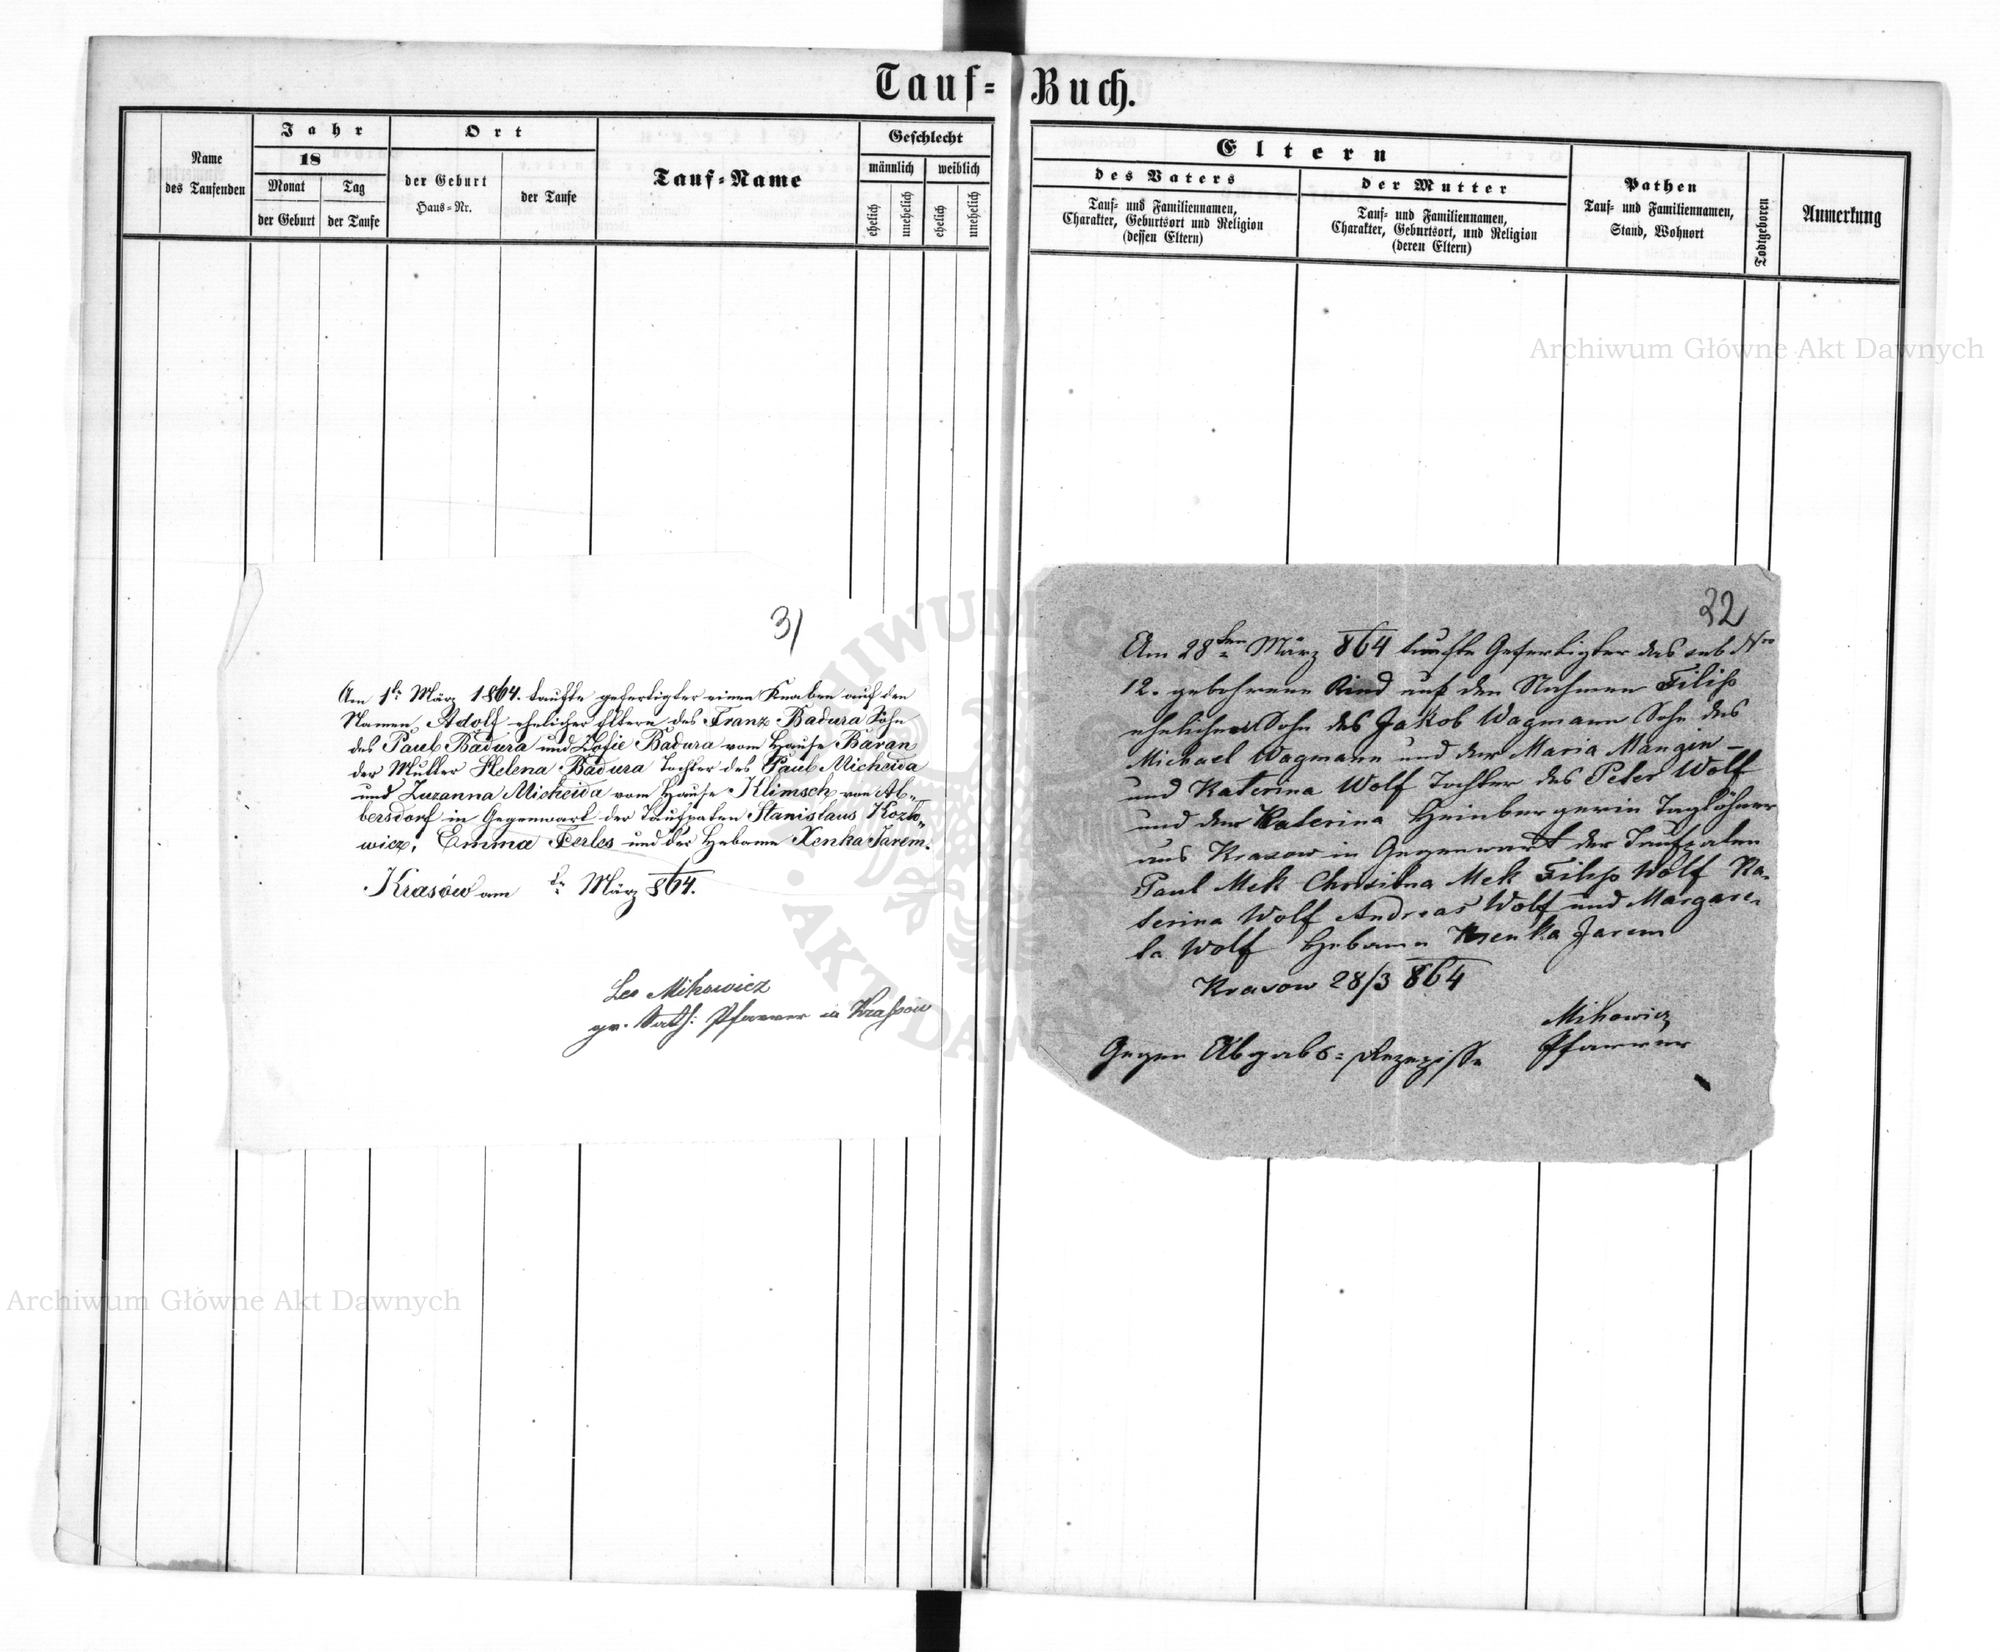 Tauf-Buch.
Name
des Taufenden
Jahr
18
Monat
der Geburt
Tag
der Taufe
Ort
der Geburt
Haus-Nr.
der Taufe
Tauf-Name
Geschlecht
männlich
weiblich
ehelich
unehelich
ehelich
unehelich
Eltern
des Vaters
Tauf- und Familiennamen,
Charakter, Geburtsort und Religion
(dessen Eltern)
der Mutter
Tauf- und Familiennamen,
Charakter, Geburtsort, und Religion
(deren Eltern)
Pathen
Tauf- und Familiennamen,
Stand, Wohnort
Todtgeboren
Anmerkung
31
Am 1t März 1864. taufte gefertigter einen Knaben auf den
Namen Adolf ehelicher Eltern des Franz Badura Sohn
des Paul Badura und Zofie Badura vom Hause Baran
der Mutter Helena Badura Tochter des Paul Micheida
und Zuzanna Micheida vom Hause Klimsch von Al-
bersdorf in Gegenwart der Taufpaten Stanislaus Kozlo-
wicz, Emma Ferles und der Hebame Xenka Jarem.
Krasów am März 864.
Leo Mikowicz
gr. kath: Pfarrer in Krassow
32
Am 28ten März 864 taufte Gefertigter das sub Nro
12. gebohrene Kind auf den Nahmen Filip
ehelichen Sohn des Jakob Wagmann Sohn des
Michael Wagmann und der Maria Mangin -
und Katerina Wolf Tochter des Peter Wolf
und der Katerina Heinbergerin Taglöhner
aus Krasow in Gegenwart der Taufpaten
Paul Mek Chrisibna Mek Filip Wolf Ka-
terina Wolf Andreas Wolf und Margare-
ta Wolf Hebame Ksenka Jarem
Krasow 28/3 864
Mikowicz
Pfarrer
Gegen Abgabs-Rezepisse
Archiwum Główne Akt Dawnych
Archiwum Główne Akt Dawnych